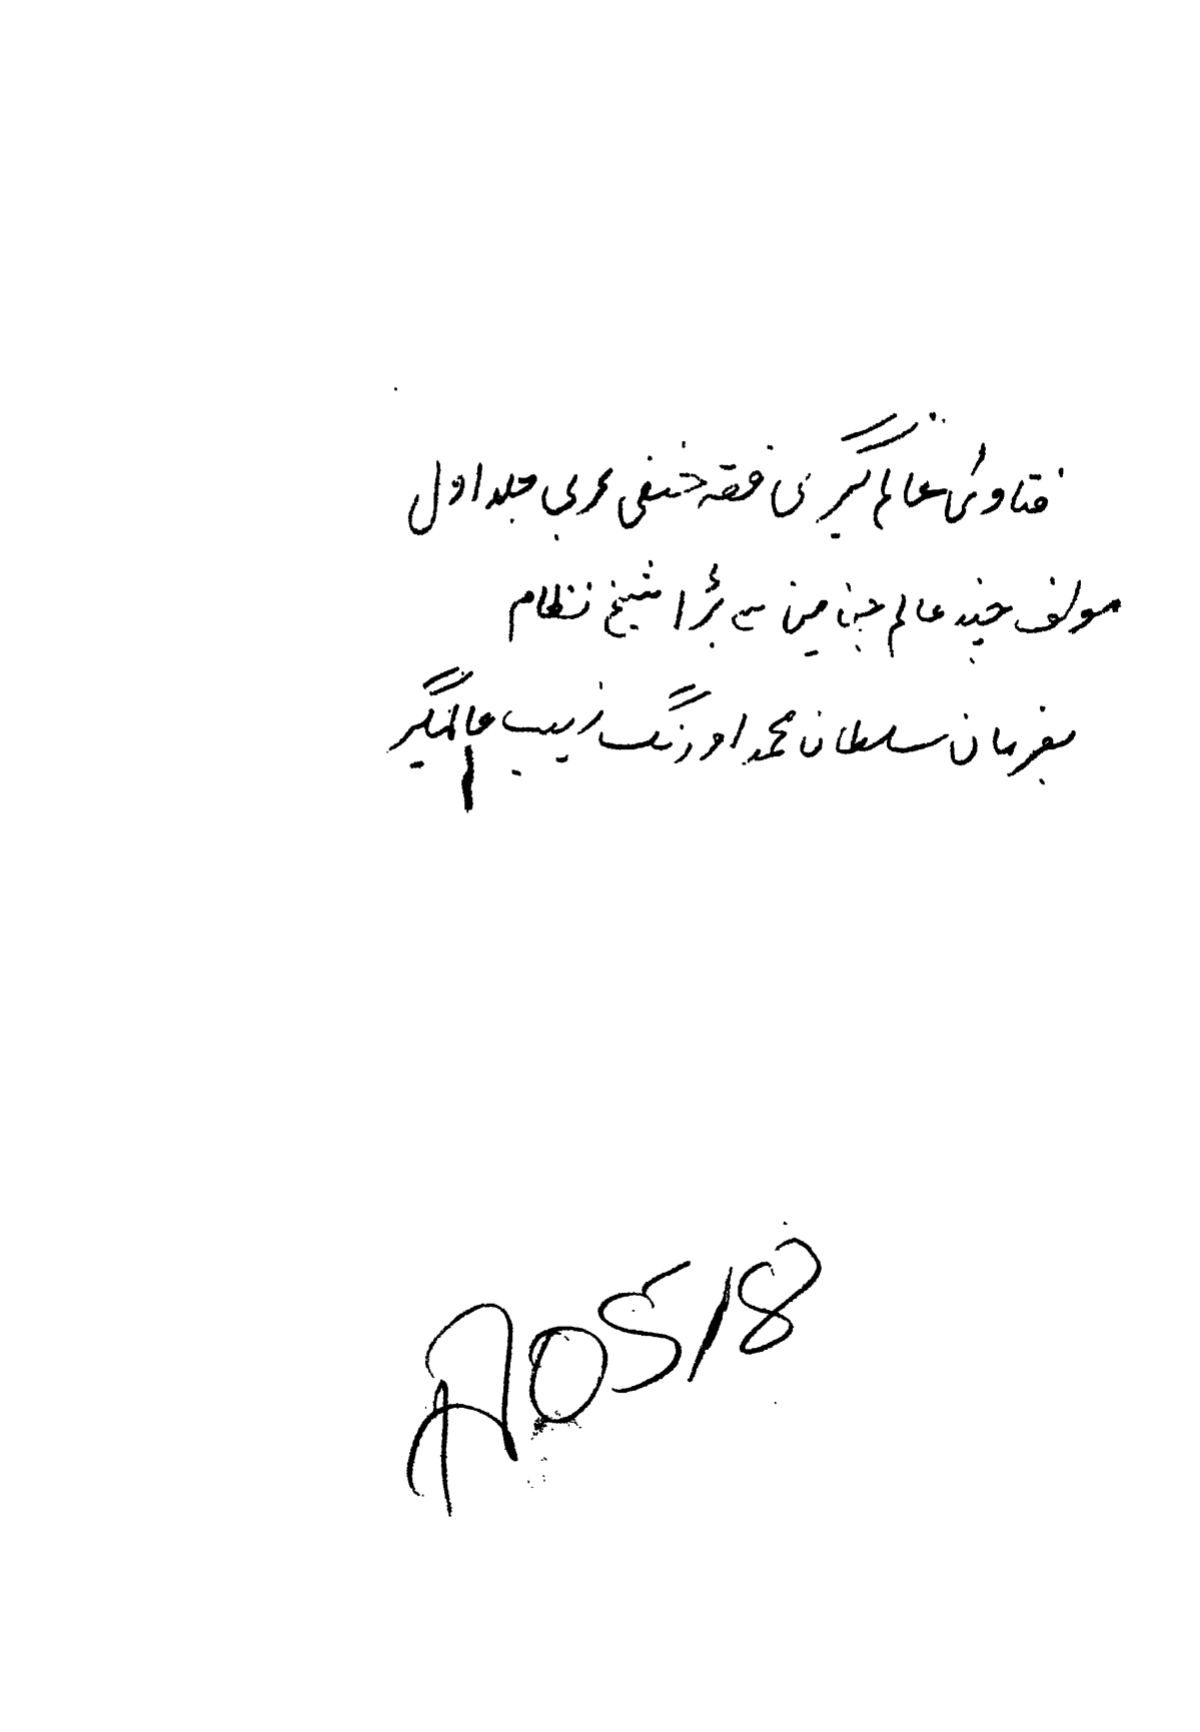 فتاوئ عالم گیری فقہ حنفی عربی جلد اول
مولف چند عالم جن مین سے بڑا شیخ نظام
بفرمان سلطان محمد اورنگ زیب عالمگیر
A0518